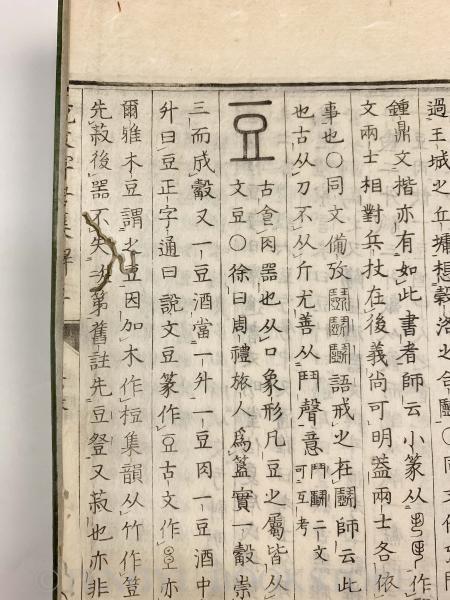 過王城之丘墉想穀洛之合鬭〇同文
鍾鼎文楷亦有如此書者師云小篆从作
文兩士相對兵杖在後義尚可明葢兩士各依
事也〇同文備攷鬭鬭語戒之在鬭師云此
也古从刀不从斤尤善从鬥聲意鬥鬭二文可互考
豆
古食肉器也从口象形凡豆之屬皆从
文豆〇徐曰周禮旅人爲簋實一觳崇
三而成觳又一豆酒當一升一豆肉一豆酒中
升曰豆正字通曰說文豆篆作豆古文作亦
爾雅木豆謂之豆因加木作梪集韻从竹作䇺
先菽後器不失次第舊註先豆登又菽也亦非